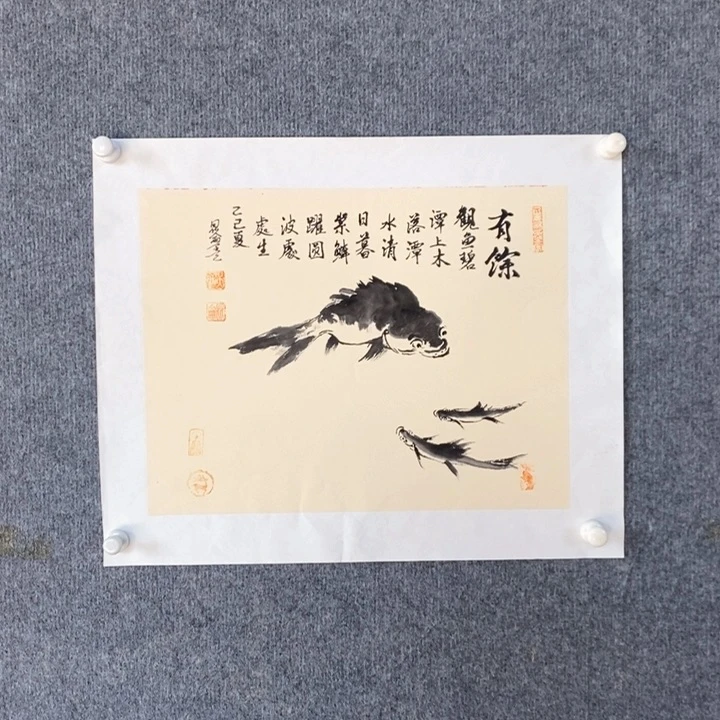 有餘
觀魚碧
潭上木
落潭
水清
日暮
紫鱗
躍圓
波處
處生
乙巳夏